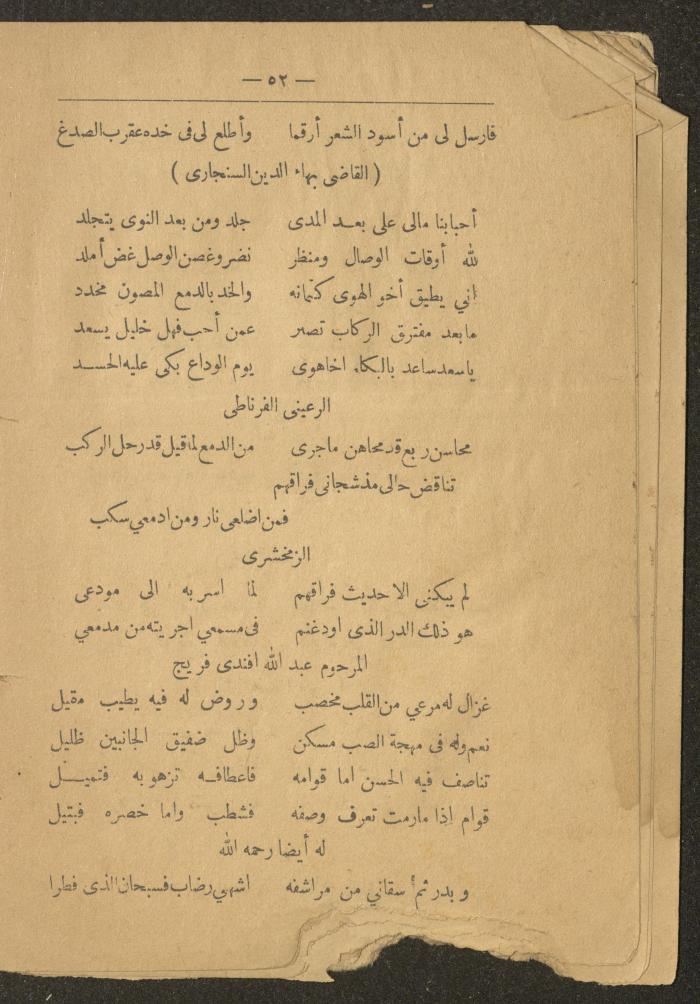 — ٥٢ —
فارسل لى من أسود الشعر أرقما وأطلع لى فى خده عقرب الصدغ
( القاضى بهاء الدين السنجارى )
أحبابنا مالى على بعد المدى جلد ومن بعد النوى يتجلد
لله أوقات الوصال ومنظر نضر وغصن الوصل غض أملد
انى يطيق أخو الهوى كتمانه والخد بالدمع المصون مخدد
مابعد مفترق الركاب تصبر عمن أحب فهل خليل يسعد
ياسعد ساعد بالبكاء اخاهوى يوم الوداع بكى عليه الحسد
الرعينى الغرناطى
محاسن ربع قد محاهن ماجرى من الدمع لما قيل قد رحل الركب
تناقض حالى مذ شجانى فراقهم
فمن اضلعى نار ومن ادمعي سكب
الزمخشرى
لم يبكنى الا حديث فراقهم لما اسر به الى مودعى
هو ذلك الدر الذى اودعتم فى مسمعي اجريته من مدمعي
المرحوم عبد الله افندى فريج
غزال له مرعي من القلب مخصب وروض له فيه يطيب مقيل
نعم وله فى مهجة الصب مسكن وظل ضفيق الجانبين ظليل
تناصف فيه الحسن اما قوامه فاعطافه تزهو به فتميل
قوام إذا مارمت تعرف وصفه فشطب واما خصره فبتيل
له أيضا رحمه الله
وبدر تم سقاني من مراشفه اشهي رضاب فسبحان الذى فطرا